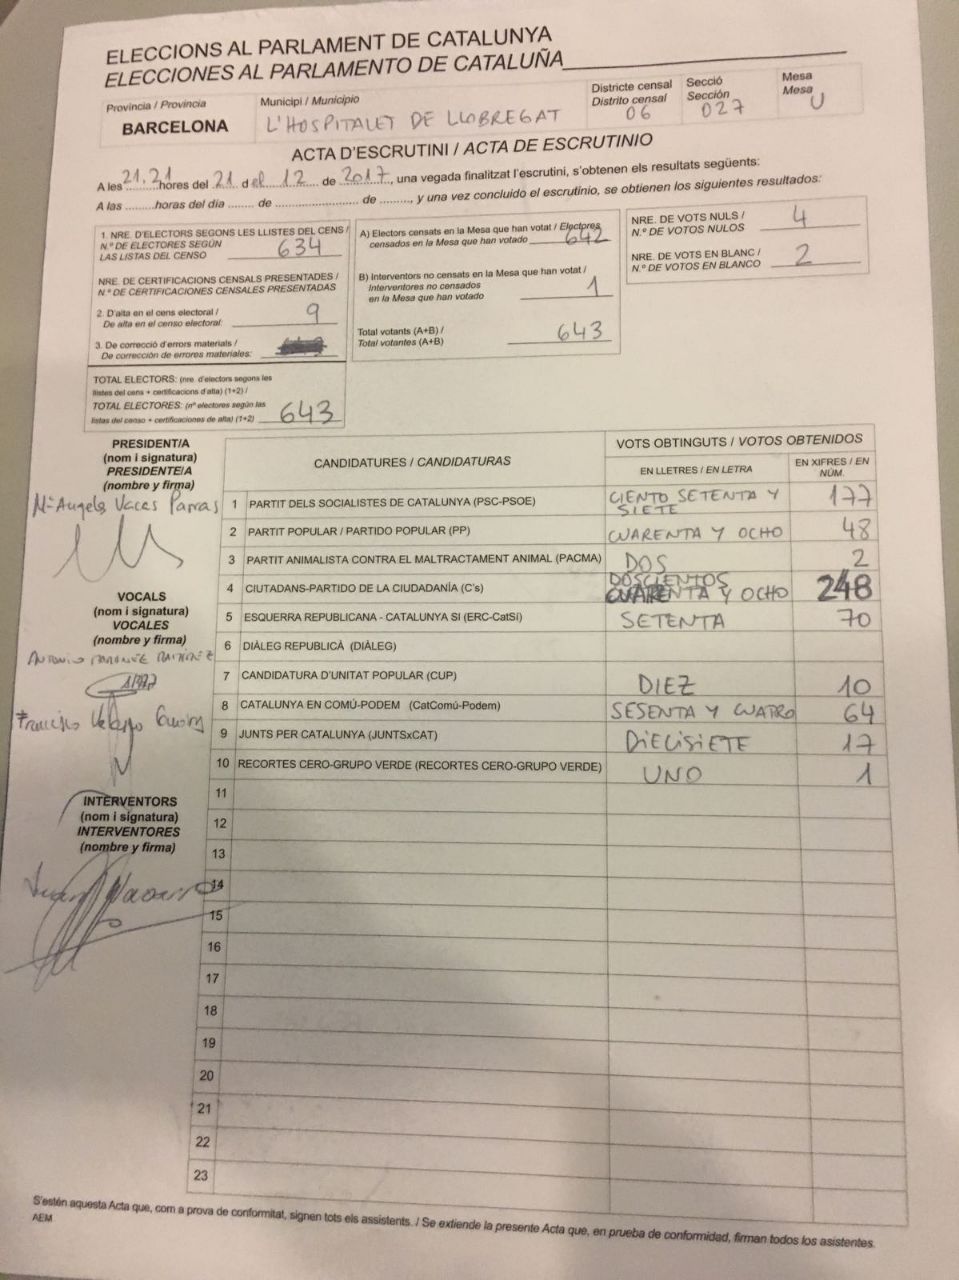 ELECCIONS AL PARLAMENT DE CATALUNYA
ELECCIONES AL PARLAMENTO DE CATALUÑA
Província / Provincia
BARCELONA
Municipi / Municipio
L'HOSPITALET DE LLOBREGAT
Districte censal
Distrito censal
06
Secció
Sección
027
Mesa
Mesa
U
ACTA D'ESCRUTINI / ACTA DE ESCRUTINIO
A les 21,21 hores del 21 d el 12 de 2017, una vegada finalitzat l'escrutini, s'obtenen els resultats següents:
A las ........horas del día ....... de ........................ de ........, y una vez concluido el escrutinio, se obtienen los siguientes resultados:
1. NRE. D'ELECTORS SEGONS LES LLISTES DEL CENS /
N.º DE ELECTORES SEGÚN
LAS LISTAS DEL CENSO 634
NRE. DE CERTIFICACIONS CENSALS PRESENTADES /
N.º DE CERTIFICACIONES CENSALES PRESENTADAS
2. D'alta en el cens electoral /
De alta en el censo electoral: 9
3. De correcció d'errors materials /
De corrección de errores materiales:
TOTAL ELECTORS: (nre. d'electors segons les
llistes del cens + certificacions d'alta) (1+2) /
TOTAL ELECTORES: (nº electores según las
listas del censo + certificaciones de alta) (1+2) 643
A) Electors censats en la Mesa que han votat / Electores
censados en la Mesa que han votado 642
B) Interventors no censats en la Mesa que han votat /
Interventores no censados
en la Mesa que han votado 1
Total votants (A+B) /
Total votantes (A+B) 643
NRE. DE VOTS NULS /
N.º DE VOTOS NULOS 4
NRE. DE VOTS EN BLANC /
N.º DE VOTOS EN BLANCO 2
PRESIDENT/A
(nom i signatura)
PRESIDENTE/A
(nombre y firma)
Mª Angels Vacas Parras
VOCALS
(nom i signatura)
VOCALES
(nombre y firma)
ANTONIO
Francisco
INTERVENTORS
(nom i signatura)
INTERVENTORES
(nombre y firma)
CANDIDATURES / CANDIDATURAS
VOTS OBTINGUTS / VOTOS OBTENIDOS
EN LLETRES / EN LETRA
EN XIFRES / EN NÚM.
1 PARTIT DELS SOCIALISTES DE CATALUNYA (PSC-PSOE) CIENTO SETENTA Y SIETE 177
2 PARTIT POPULAR / PARTIDO POPULAR (PP) CUARENTA Y OCHO 48
3 PARTIT ANIMALISTA CONTRA EL MALTRACTAMENT ANIMAL (PACMA) DOS 2
4 CIUTADANS-PARTIDO DE LA CIUDADANÍA (C's) DOSCIENTOS CUARENTA Y OCHO 248
5 ESQUERRA REPUBLICANA - CATALUNYA SI (ERC-CatSí) SETENTA 70
6 DIÀLEG REPUBLICÀ (DIÀLEG)
7 CANDIDATURA D'UNITAT POPULAR (CUP) DIEZ 10
8 CATALUNYA EN COMÚ-PODEM (CatComú-Podem) SESENTA Y CUATRO 64
9 JUNTS PER CATALUNYA (JUNTSxCAT) DIECISIETE 17
10 RECORTES CERO-GRUPO VERDE (RECORTES CERO-GRUPO VERDE) UNO 1
11
12
13
14
15
16
17
18
19
20
21
22
23
S'estén aquesta Acta que, com a prova de conformitat, signen tots els assistents. / Se extiende la presente Acta que, en prueba de conformidad, firman todos los asistentes.
AEM